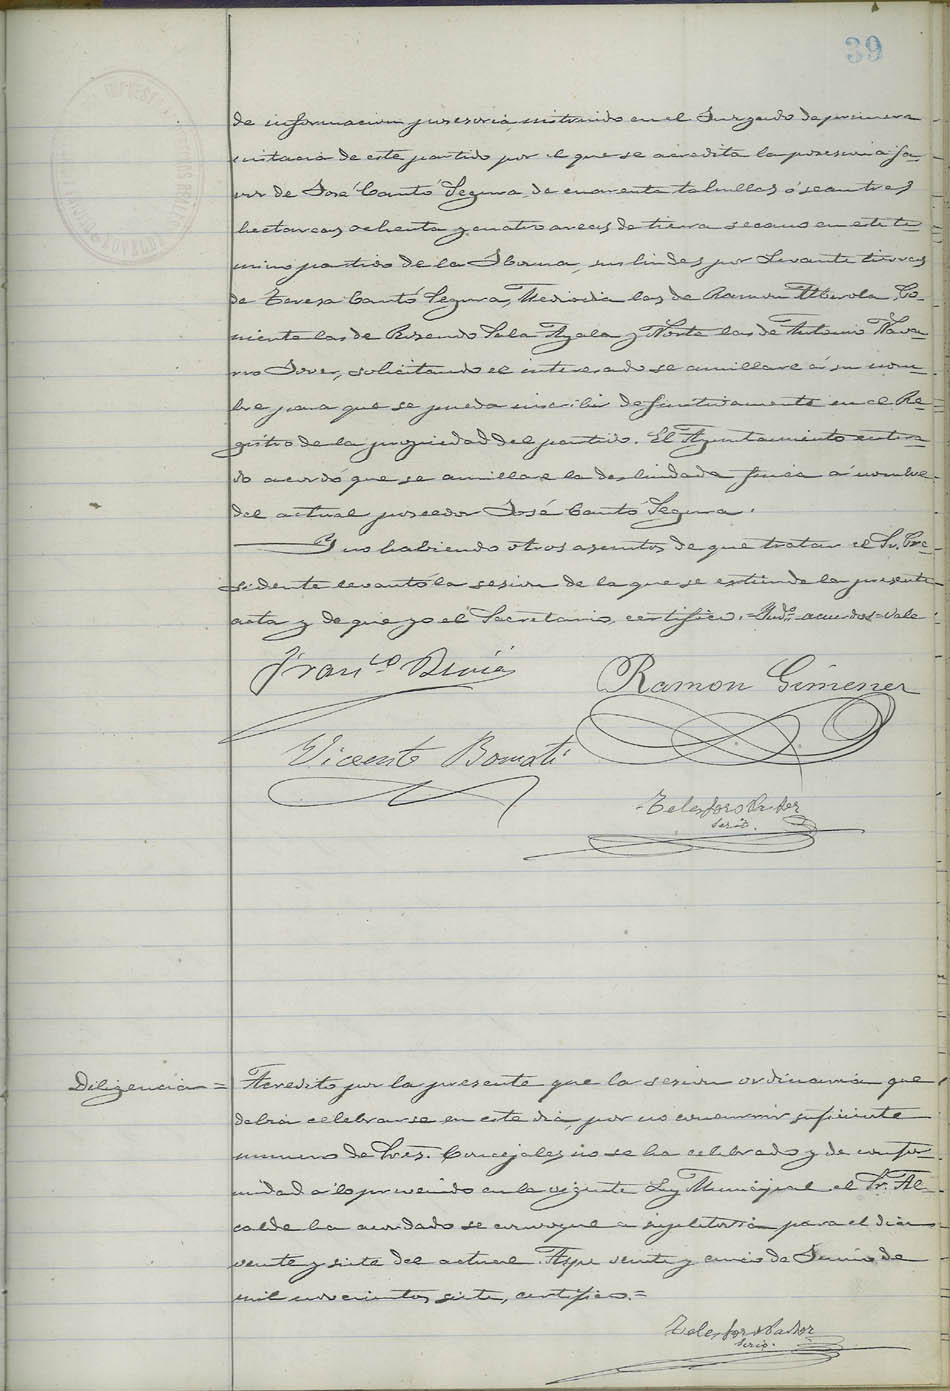 39
de informacion posesoria instruido en el Juzgado de primera
instacia de este partido por el que se acredita la posesion a fa-
vor de José Cantó Segura de cuarenta tahullas ó sean tres
hectareas ochenta y cuatro areas de tierra secano en este te
mino partido de la sus lindes por Levante tierras
de Teresa Cantó Segura, Mediodia las de Ramon Alberola, Po-
niente las de Rosendo Sala Ayala y Norte las de Antonio Nava-
rro Jover, solicitando el interesado se amillare á su nom-
bre para que se pueda inscribir definitivamente en el Re-
gistro de la propiedad del partido. El Ayuntamiento entera-
do acordó que se amillare la deslindada finca a nombre
del actual poseedor José Cantó Segura.
Y no habiendo otros asuntos de que tratar el Sr. Pre-
sidente levantó la sesion de la que se extiende la presente
acta y de que yo el Secretario, certifico. = acuerdos = vale
Franco
Ramon Gimenez
Vicente Bonmati
Telesforo Pastor
Srio.
Diligencia =
Acredito por la presente que la sesion ordinaria que
debia celebrarse en este dia, por no concurrir suficiente
numero de Sres. Concejales no se ha celebrado y de confor
midad a lo prevenido en la vigente Ley Municipal el Sr. Al-
calde ha acordado se convoque a supletoria para el dia
veinte y siete del actual. Aspe veinte y cinco de Junio de
mil novecientos siete, certifico. =
Telesforo Pastor
Srio.